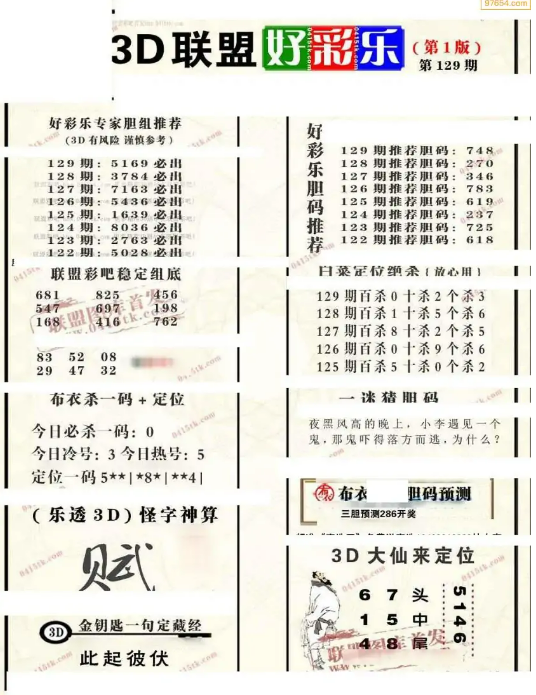 97654.com
3D联盟好彩乐
(第1版)
第129期
好彩乐专家胆组推荐
(3D有风险 谨慎参考)
129期: 5169必出
128期: 3784必出
127期: 7163必出
126期: 5436必出
125期: 1639必出
124期: 8036必出
123期: 2763必出
122期: 5028必出
联盟彩吧稳定组底
681 825 456
547 697 198
168 416 762
83 52 08
29 47 32
布衣杀一码+定位
今日必杀一码: 0
今日冷号: 3 今日热号: 5
定位一码 5**|*8*|**4|
(乐透3D)怪字神算
赋
3D 金钥匙一句定藏经
此起彼伏
好彩乐胆码推荐
129期推荐胆码: 748
128期推荐胆码: 270
127期推荐胆码: 346
126期推荐胆码: 783
125期推荐胆码: 619
124期推荐胆码: 237
123期推荐胆码: 725
122期推荐胆码: 618
白菜定位绝杀(放心用)
129期百杀0十杀2个杀3
128期百杀1十杀5个杀6
127期百杀8十杀2个杀5
126期百杀0十杀9个杀6
125期百杀5十杀0个杀2
一谜猜胆码
夜黑风高的晚上,小李遇见一个
鬼,那鬼吓得落方而逃,为什么?
布衣 胆码预测
三胆预测286开奖
3D大仙来定位
6 7 头
1 5 中
4 8 尾
5146